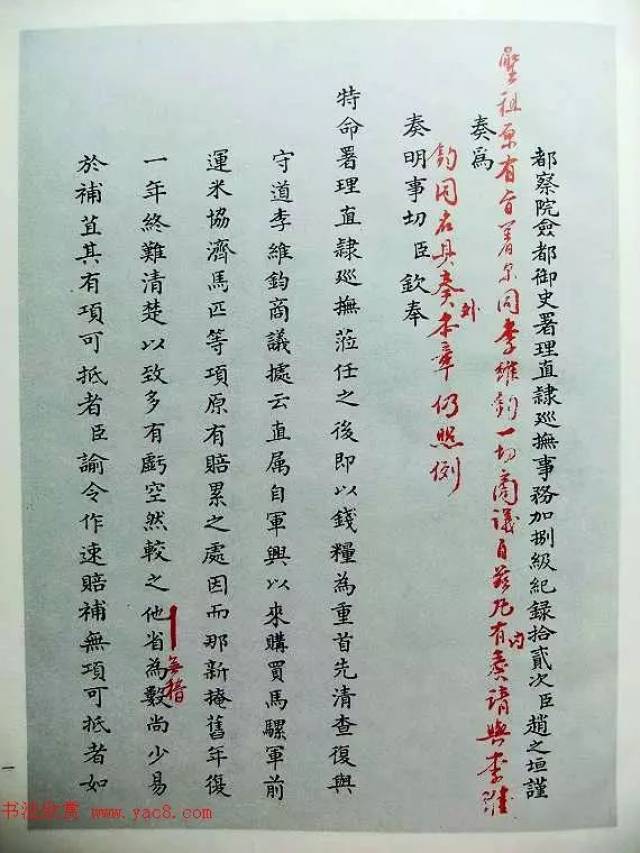 都察院僉都御史署理直隸廵撫事務加捌級紀錄拾貳次臣趙之垣謹
聖祖原有旨著尔同李維鈞一切商議自茲凡有内奏請與李維
奏爲
鈞同名具奏外本章仍照例
奏明事切臣欽奉
特命署理直隸廵撫蒞任之後即以錢糧為重首先清查復與
守道李維鈞商議據云直属自軍興以來購買馬騾軍前
運米協濟馬匹等項原有賠累之處因而那新掩舊年復
一年終難清楚以致多有虧空然較之他省為數尚少易
無稽
於補苴其有項可抵者臣諭令作速賠補無項可抵者如
一
书法欣赏 www.yac8.com